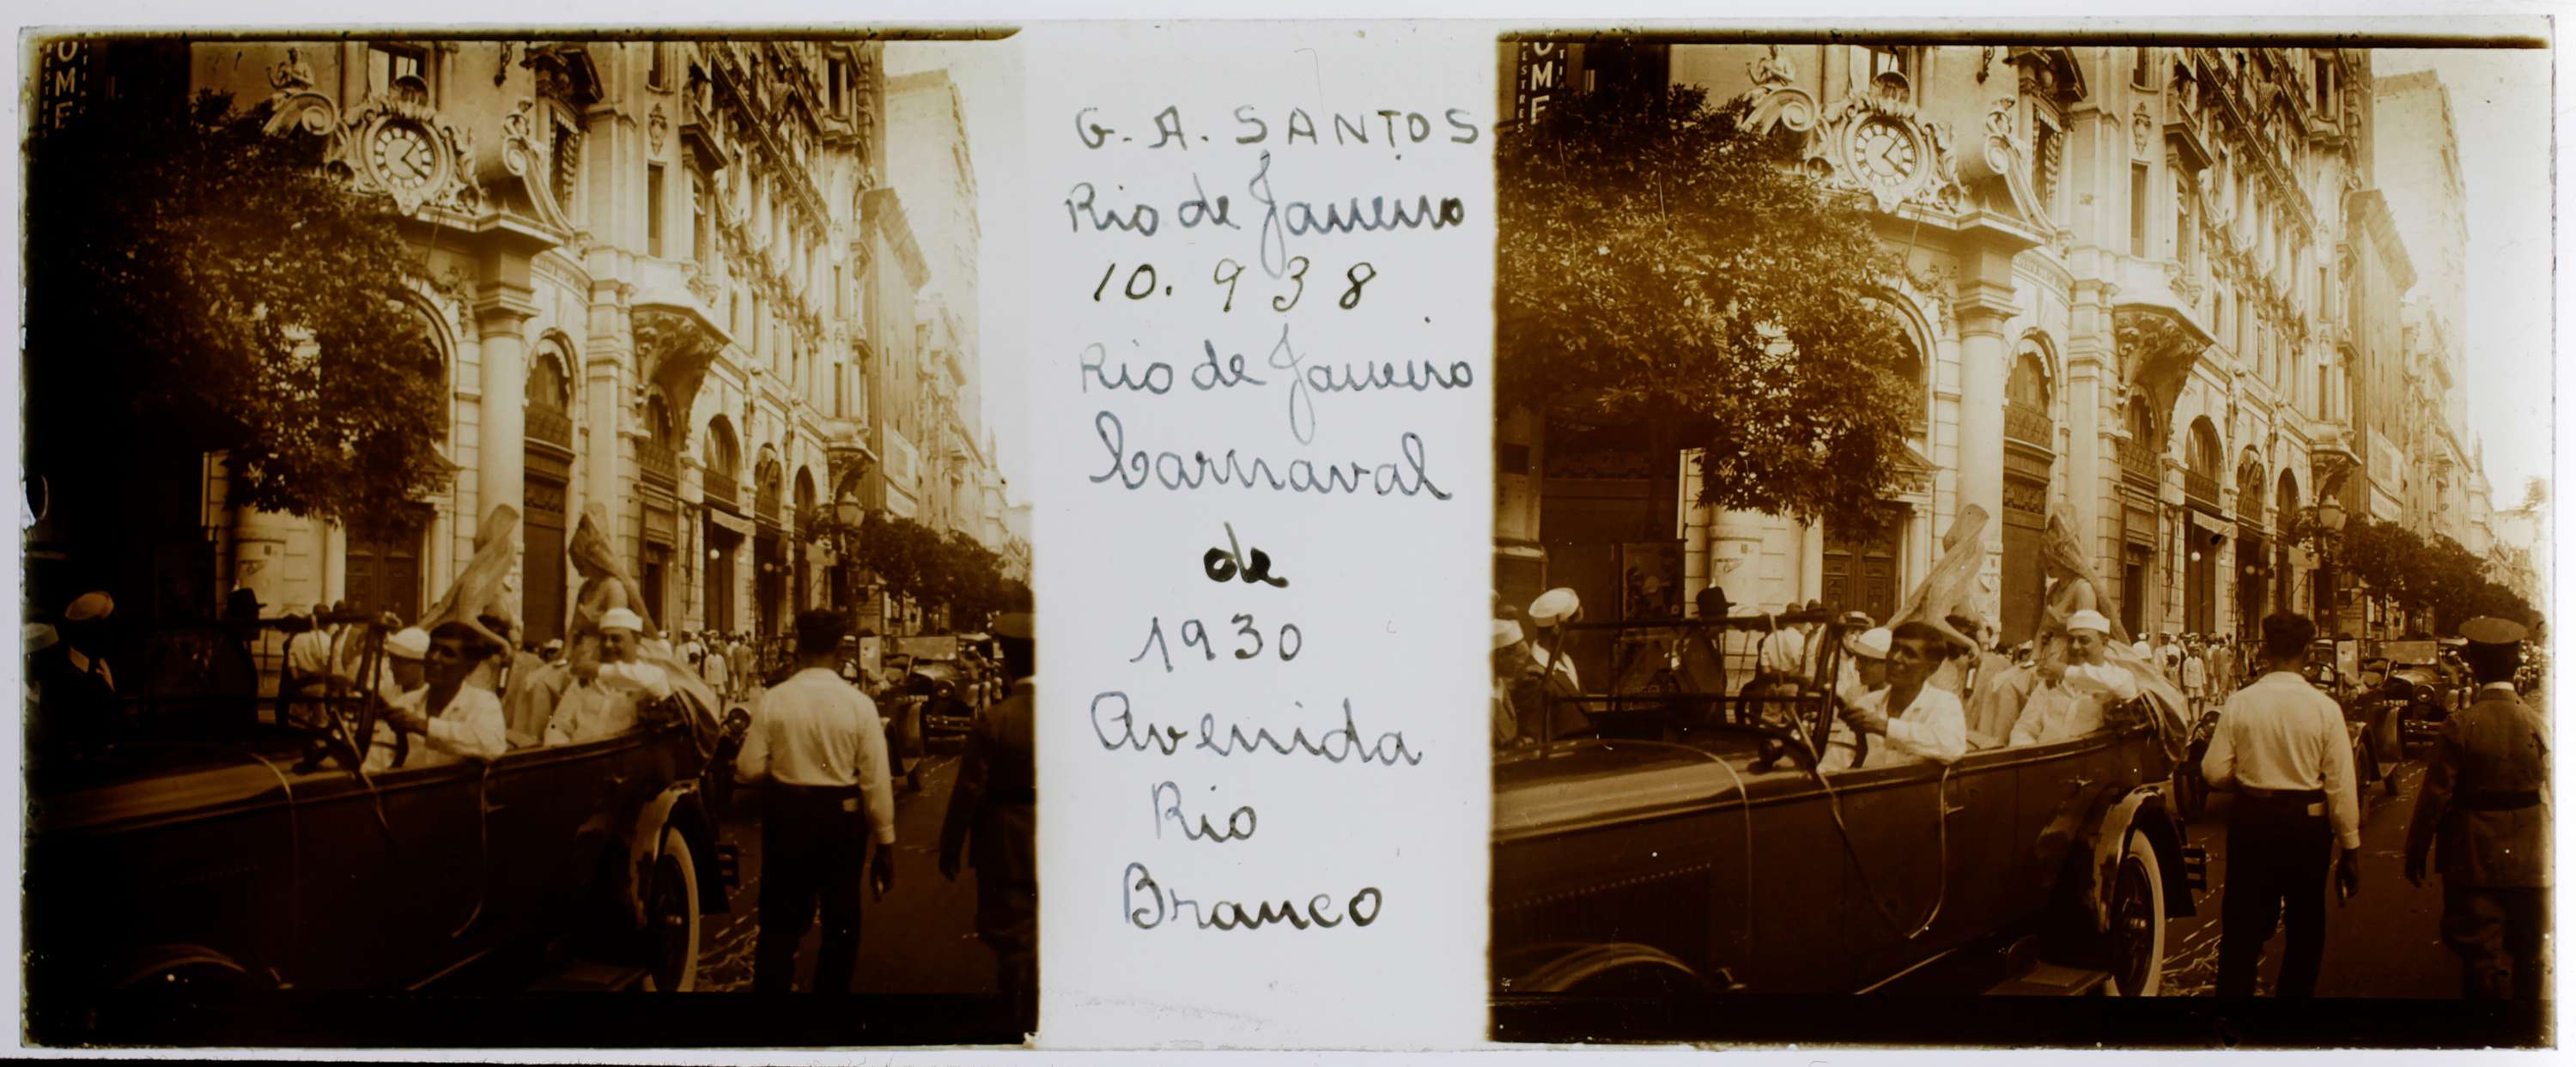 G. A. SANTOS
Rio de Janeiro
10.938
Rio de Janeiro
Carnaval
de
1930
Avenida
Rio
Branco